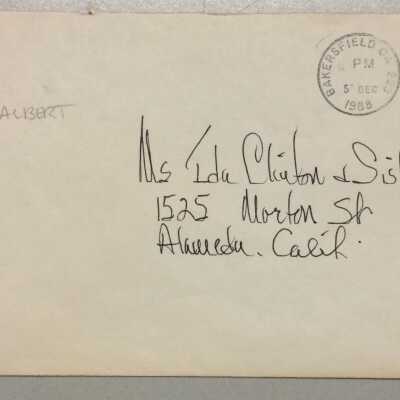 BAKERSFIELD CA
PM
5 DEC
1988
ALBERT
Ms Ida Clinton & Sis
1525 Morton St
Alameda. Calif.